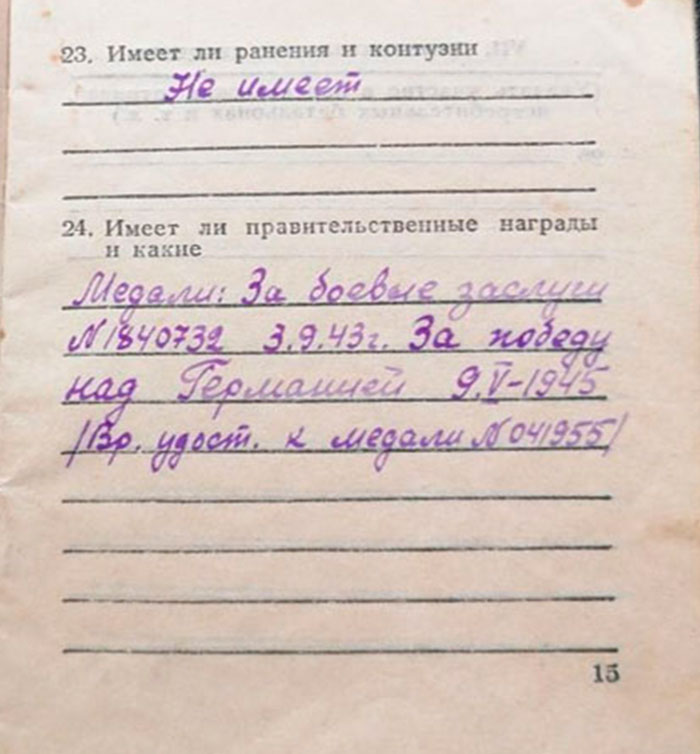 23. Имеет ли ранения и контузии
Не имеет
24. Имеет ли правительственные награды
и какие
Медали: За боевые заслуги
N1840732 3.9.43г. За победу
над Германией 9.V-1945
/Вр. удост. к медали N041955/
15